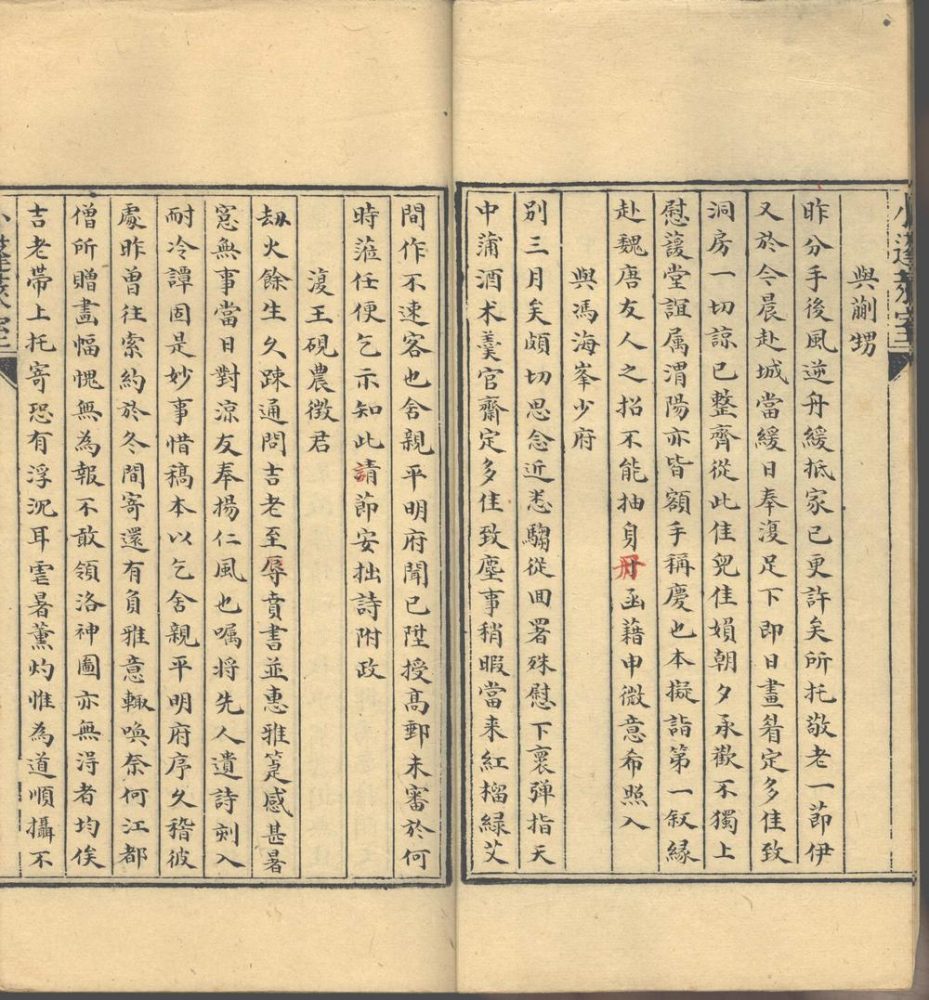 與蒯甥
昨分手後風逆舟緩抵家已更許矣所托敬老一節伊
又於今晨赴城當緩日奉復足下即日畫眉定多佳致
洞房一切諒已整齊從此佳兒佳婦朝夕承歡不獨上
慰護堂誼属渭陽亦皆額手稱慶也本擬詣第一叙緣
赴魏唐友人之招不能抽身肅函藉申微意希照入
與馮海峯少府
別三月矣頗切思念近悉騶從回署殊慰下褱彈指天
中蒲酒术羹官齋定多佳致塵事稍暇當来紅榴緑艾
間作不速客也舍親平明府聞已陞授髙郵未審於何
時蒞任便乞示知此請節安拙詩附政
復王硯農徴君
刼火餘生久踈通問吉老至辱賁書並惠雅箑感甚暑
窓無事當日對涼友奉揚仁風也囑将先人遺詩刻入
耐冷譚固是妙事惜稿本以乞舍親平明府序久稽彼
處昨曽往索約於冬間寄還有負雅意輙喚奈何江都
僧所贈畫幅愧無為報不敢領洛神圖亦無淂者均俟
吉老帶上托寄恐有浮沉耳雩暑薰灼惟為道順攝不